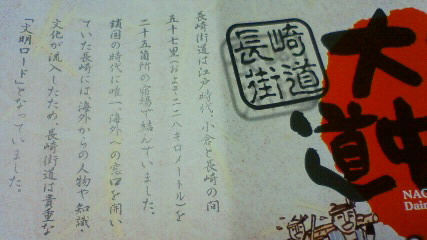 長崎街道は江戸時代、小倉と長崎の間
五十七里(およそ二二八キロメートル)を
二十五箇所の宿場で結んでいました。
鎖国の時代に唯一、海外への窓口を開い
ていた長崎には海外からの人物や知識・
文化が流入したため、長崎街道は貴重な
「文明ロード」となっていました。
長崎
街道
大
道
NAG
Dain